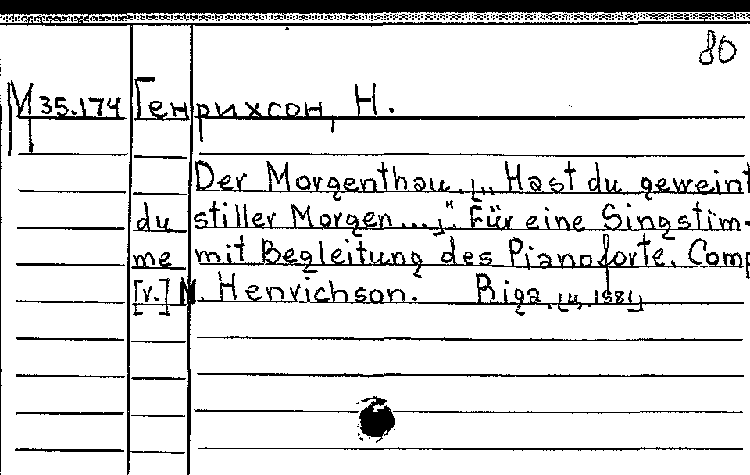 80
М 35.174 Генрихсон, Н.
Der Morgenthau. [„Hast du geweint
du stiller Morgen...]" Für eine Singstim-
me mit Begleitung des Pianoforte. Comp
[v.] N. Henrichson. Riga,